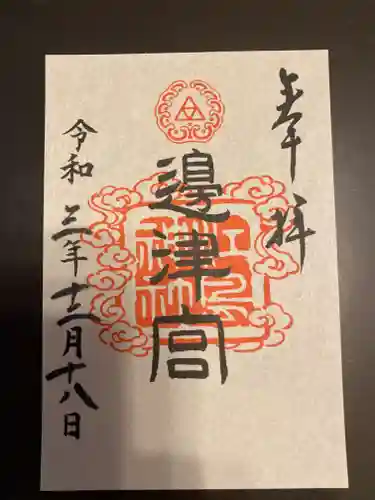 奉拝
邊津宮
令和三年十二月十八日